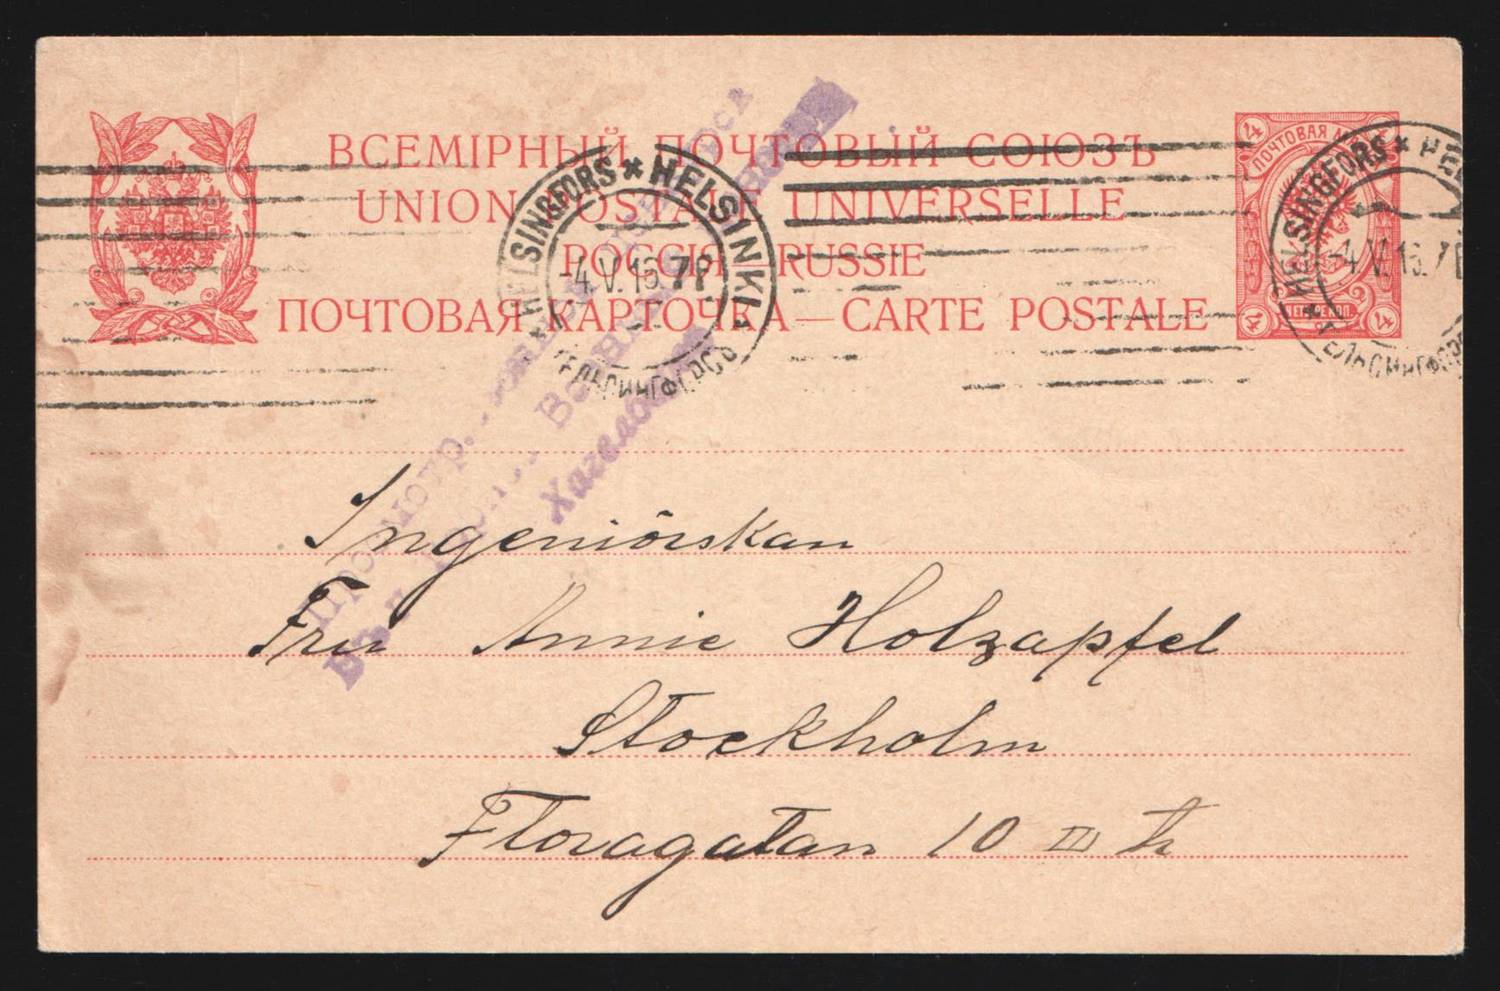 ВСЕМІРНЫЙ ПОЧТОВЫЙ СОЮЗЪ
UNION POSTALE UNIVERSELLE
РОССІЯ—RUSSIE
ПОЧТОВАЯ КАРТОЧКА—CARTE POSTALE
ПОЧТОВАЯ МАРКА
4 4
4 4
HELSINGFORS * HELSINKI *
-4.V.16.
ГЕЛЬСИНГФОРСЪ
HELSINGFORS *
-4.V.16.
ГЕЛЬСИНГФОРС
Ingeniörskan
Fru Annie Holzapfel
Stockholm
Floragatan 10 III